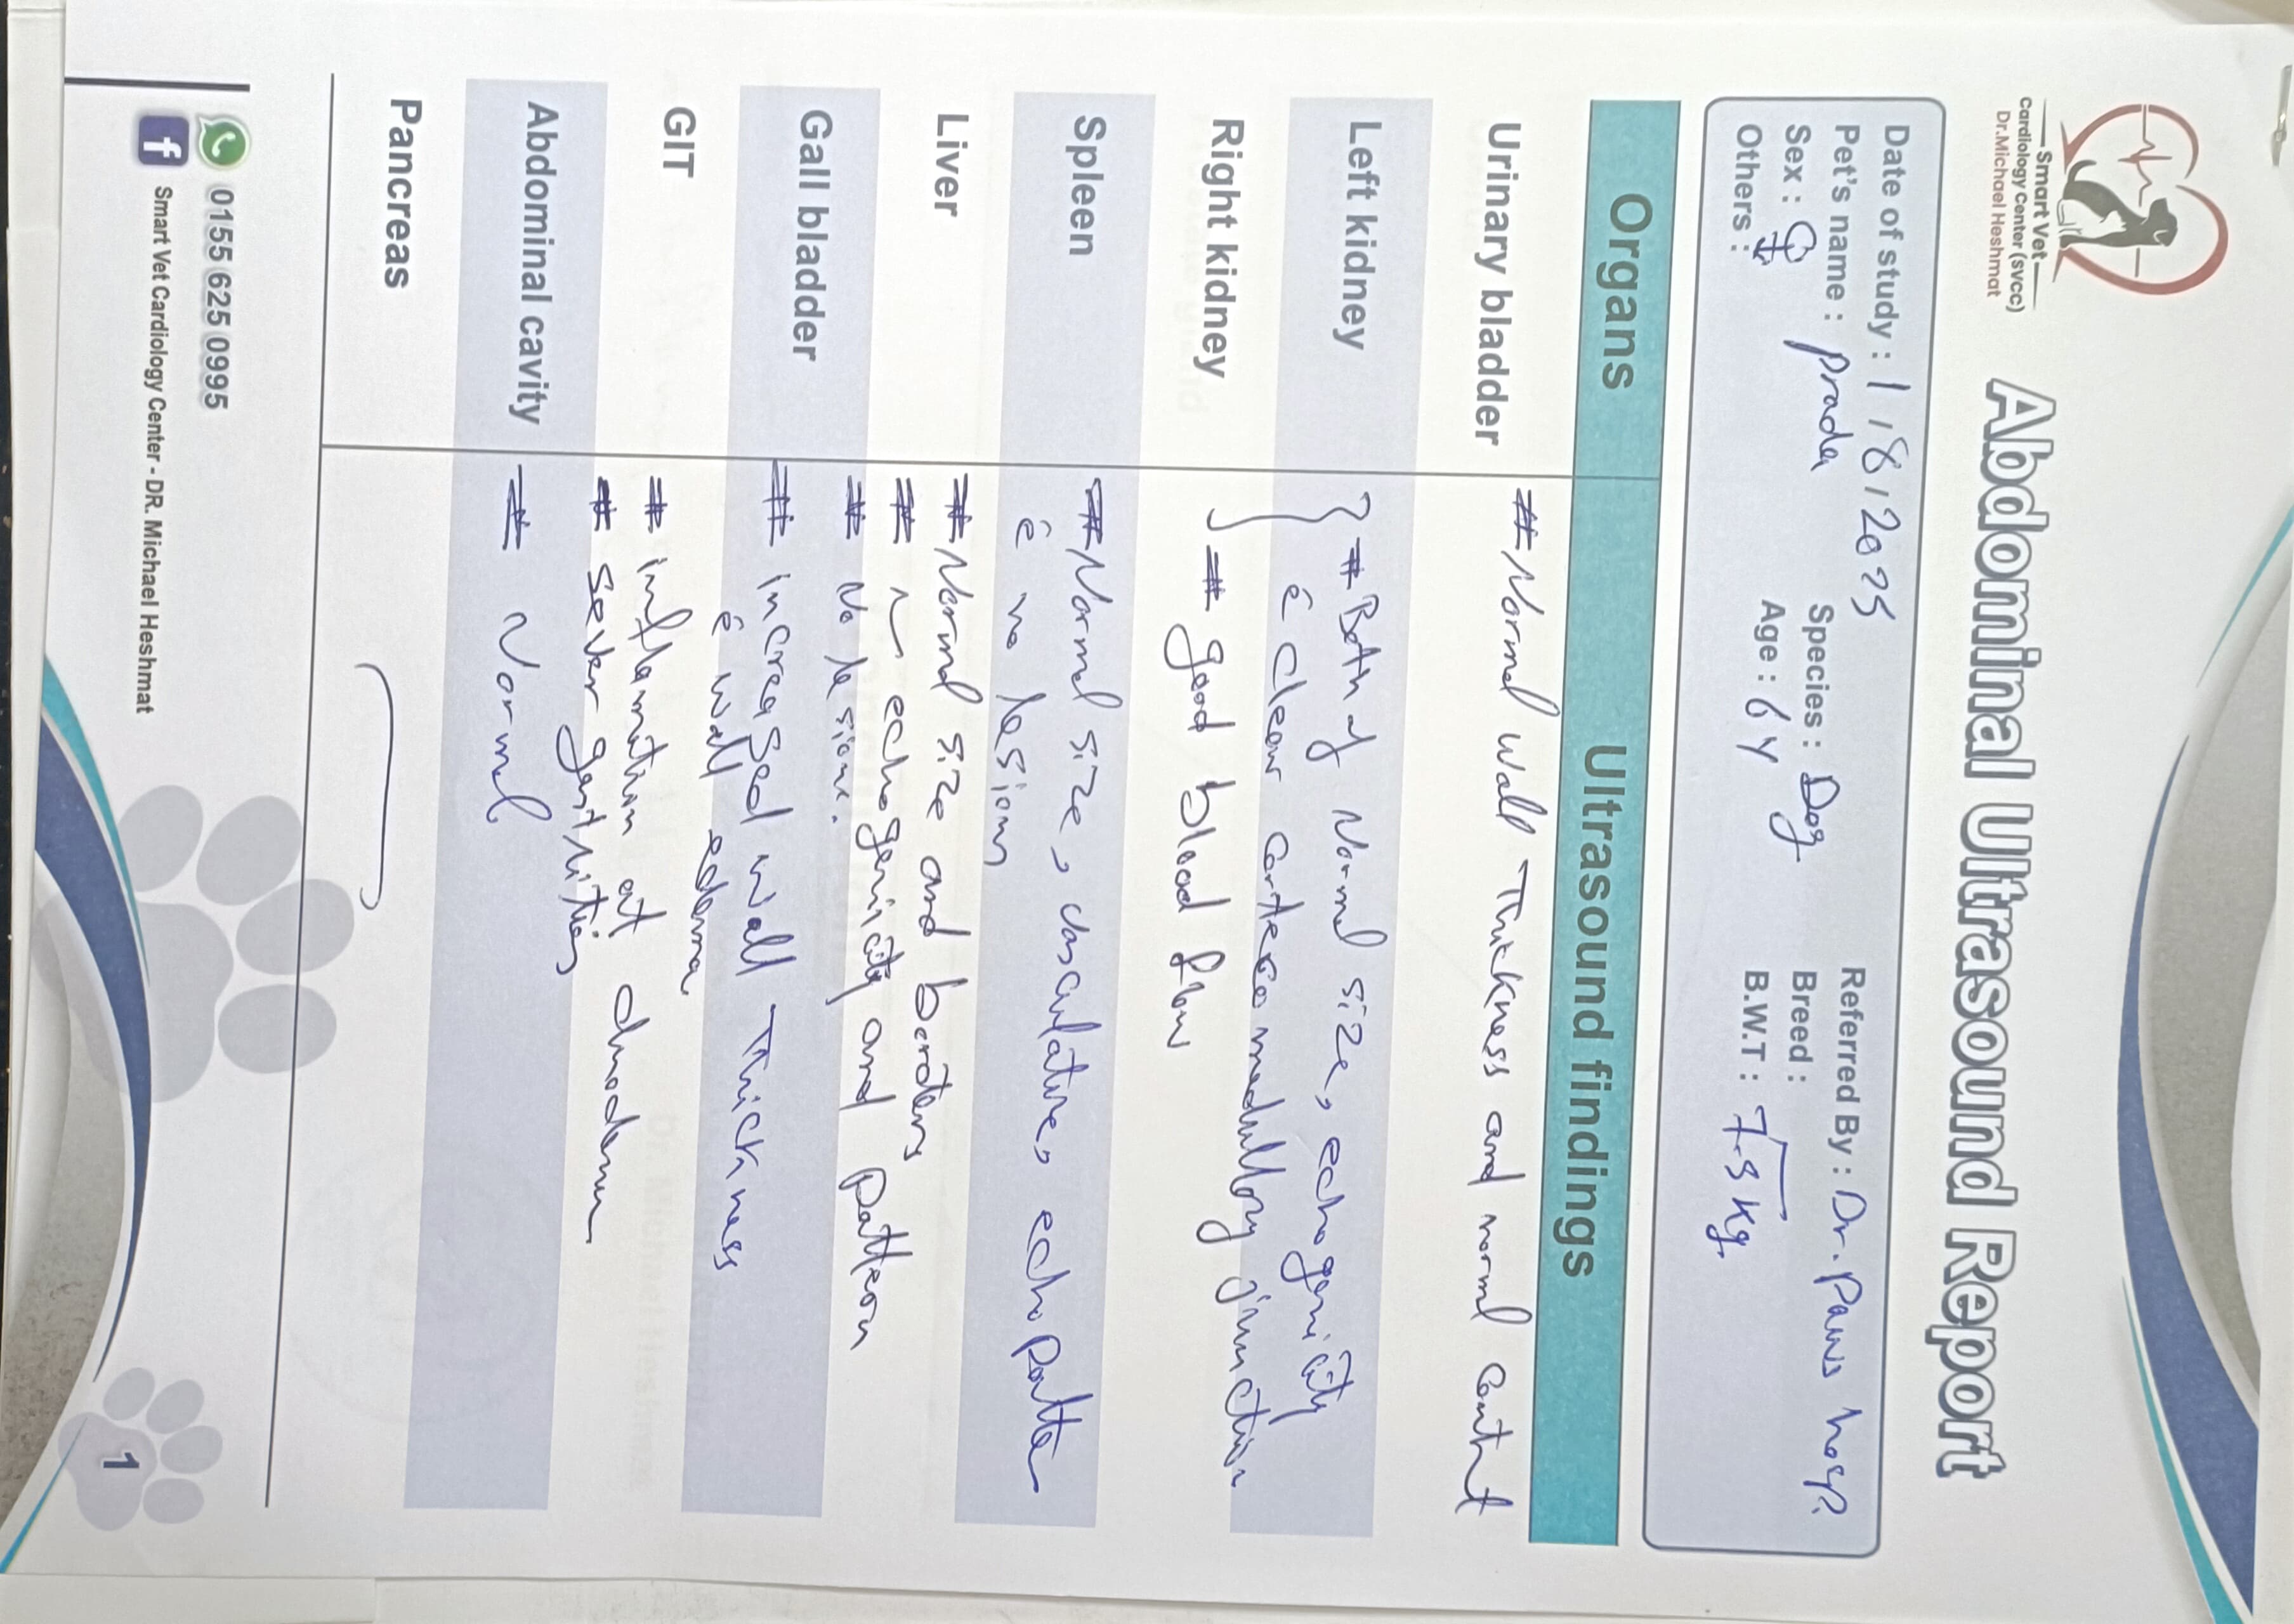 Smart Vet
Cardiology Center (svcc)
Dr.Michael Heshmat
Abdominal Ultrasound Report
Date of study : 1 / 8 / 2025
Referred By : Dr. Paws hosp.
Pet's name : prada
Species : Dog
Breed :
Sex : ♀
Age : 6 Y
B.W.T : 7.3 kg.
Others :
Organs
Ultrasound findings
Urinary bladder
# Normal wall Thickness and normal
Left kidney
# Both of Normal size, echogenicity
é clear medullory junction
Right kidney
# good blood flow
Spleen
# Normal size, vasculature, echo
é no lesion
Liver
# Normal size and borders
# N echogenicity and pattern
# No lesions.
Gall bladder
# increased wall Thickness
é wall edema
GIT
# inflamation at duodenum
# sever
Abdominal cavity
# Normal
Pancreas
0155 625 0995
Smart Vet Cardiology Center - DR. Michael Heshmat
1